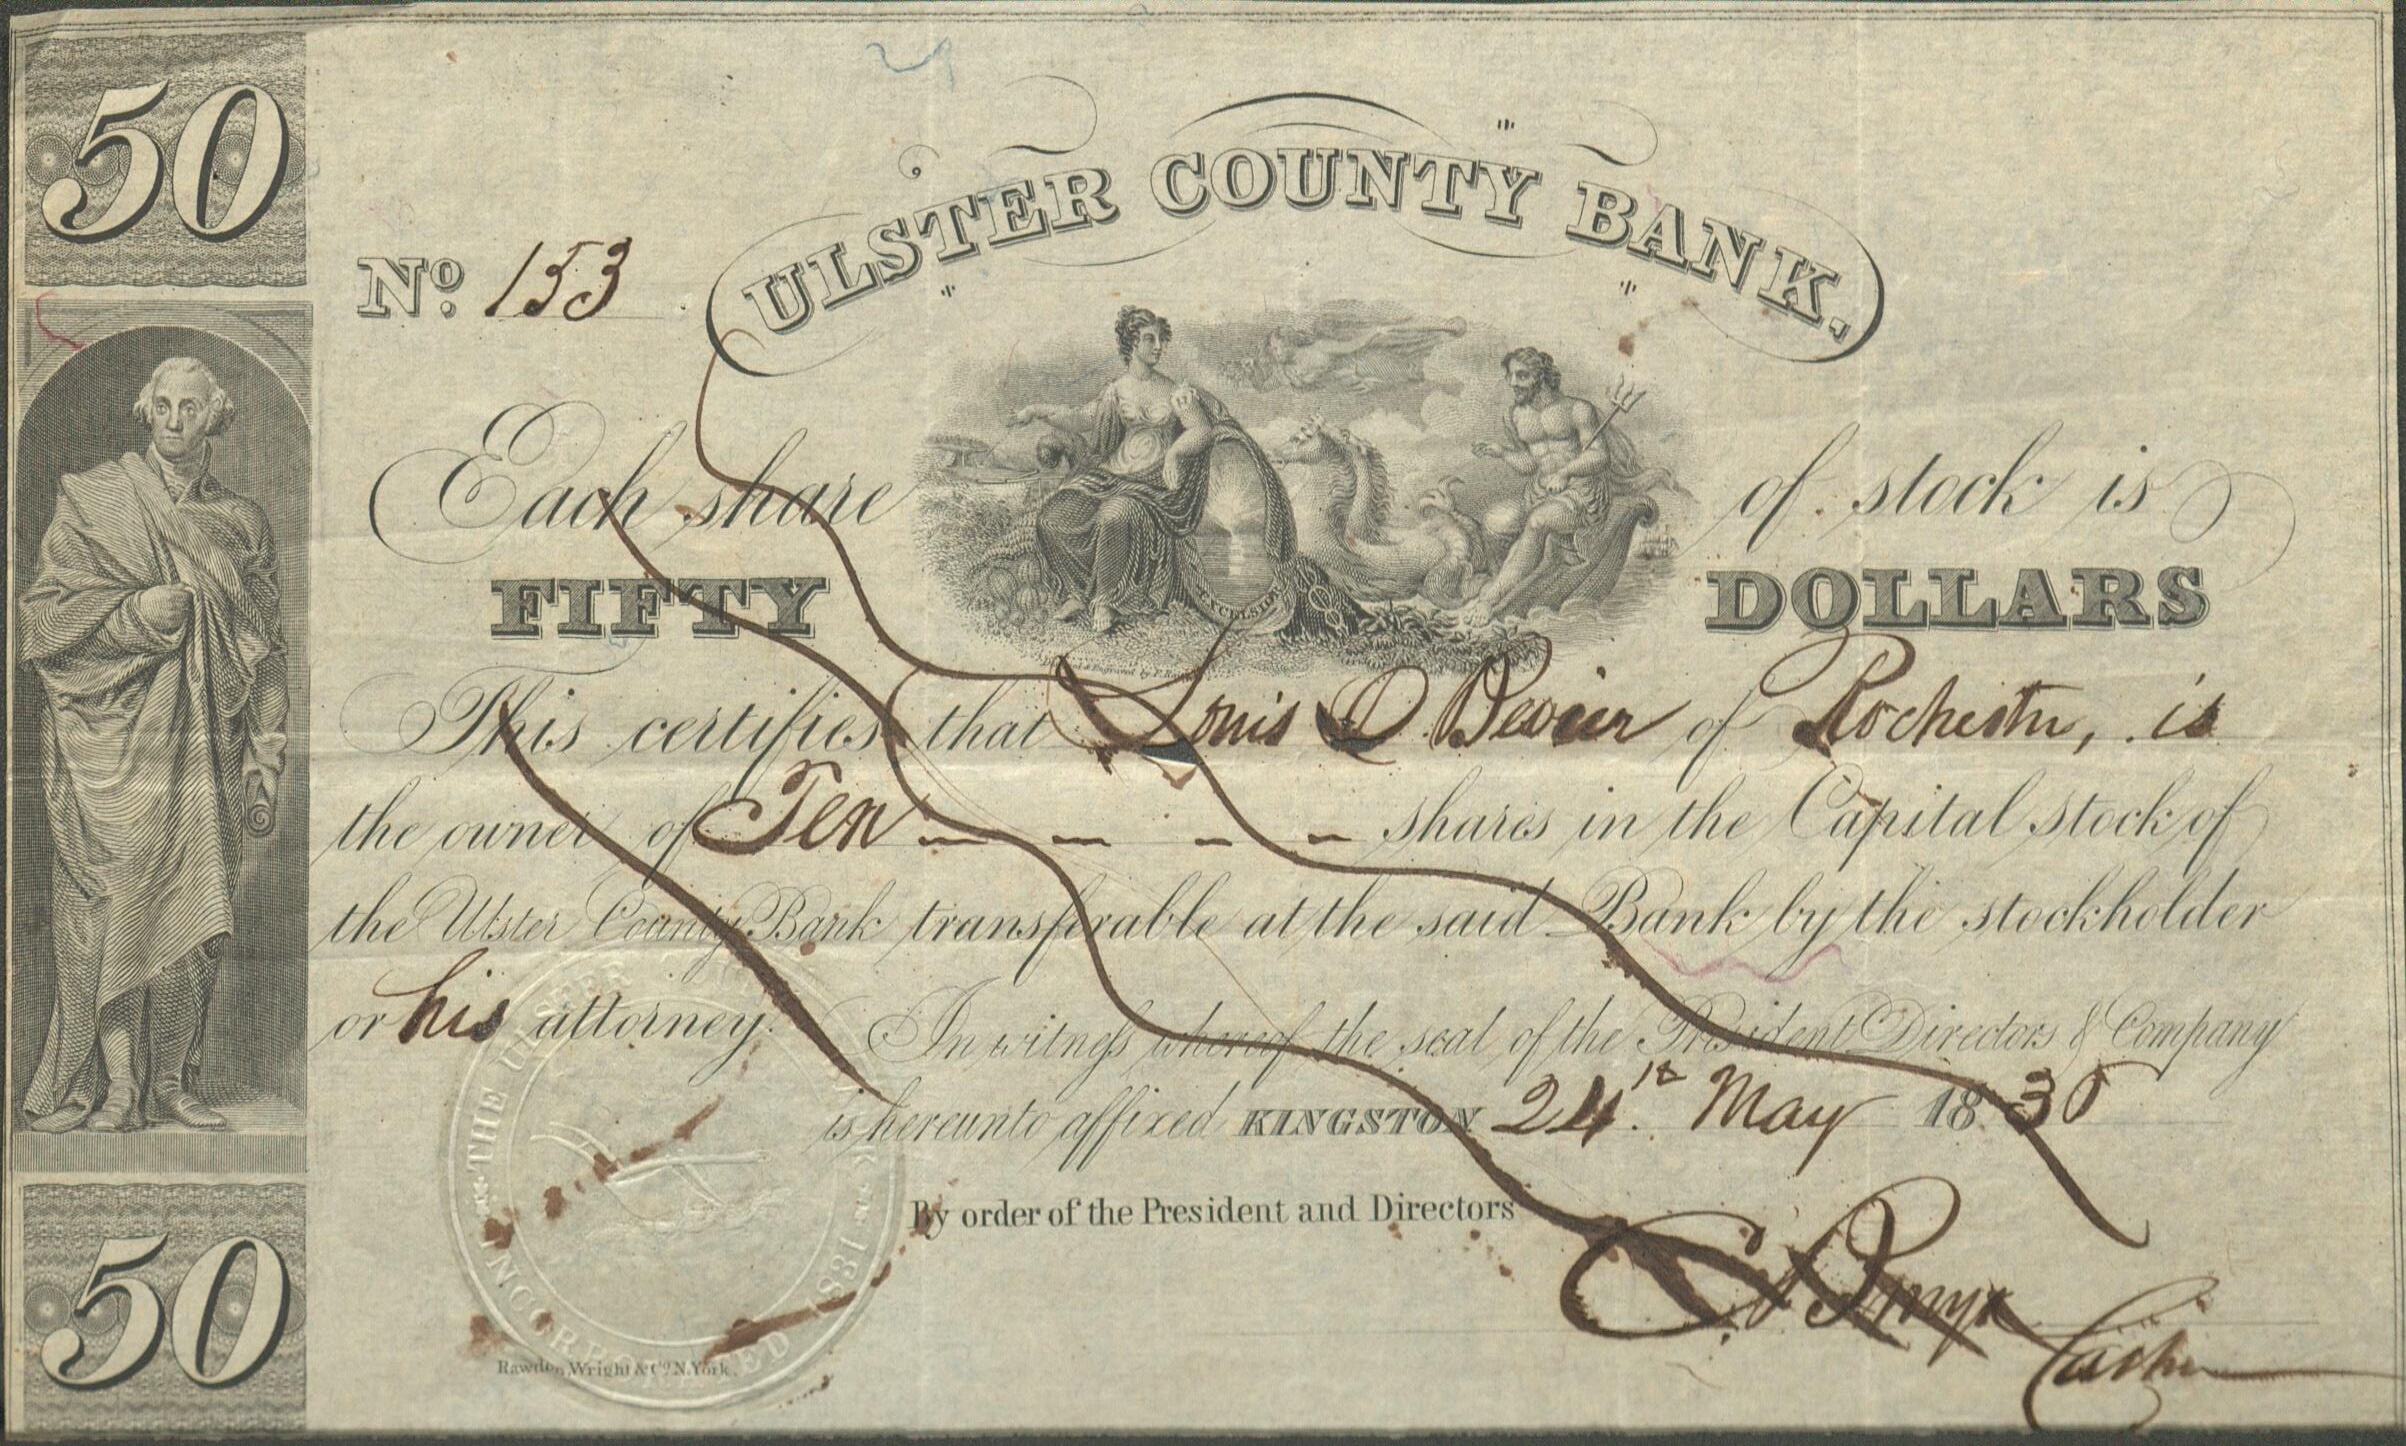 50
ULSTER COUNTY BANK.
No. 153
Each share of stock is
EXCELSIOR
FIFTY DOLLARS
This certifies that Louis D Bevier of Rochester, is
the owner of Ten shares in the Capital stock of
the Ulster County Bank transferable at the said Bank by the stockholder
or his attorney. In witness whereof the seal of the President Directors & Company
is hereunto affixed KINGSTON 24th May 18
By order of the President and Directors
Cashier
THE ULSTER COUNTY BANK
INCORPORATED 1831
Rawdon, Wright & Co. N. York.
50